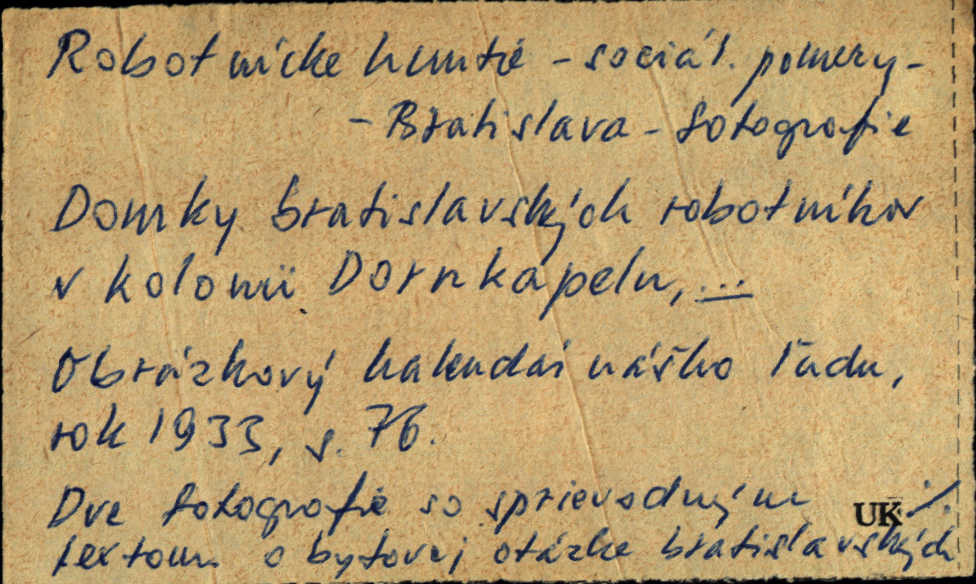 Robotnícke hnutie - sociál. pomery -
- Bratislava - fotografie
Domky bratislavských robotníkov
v kolonii Dornkapeln, ...
Obrázkový kalendár nášho ľudu,
rok 1933, s. 76.
Dve fotografie so sprievodným
textom o bytovej otázke bratislavských
UK ./.